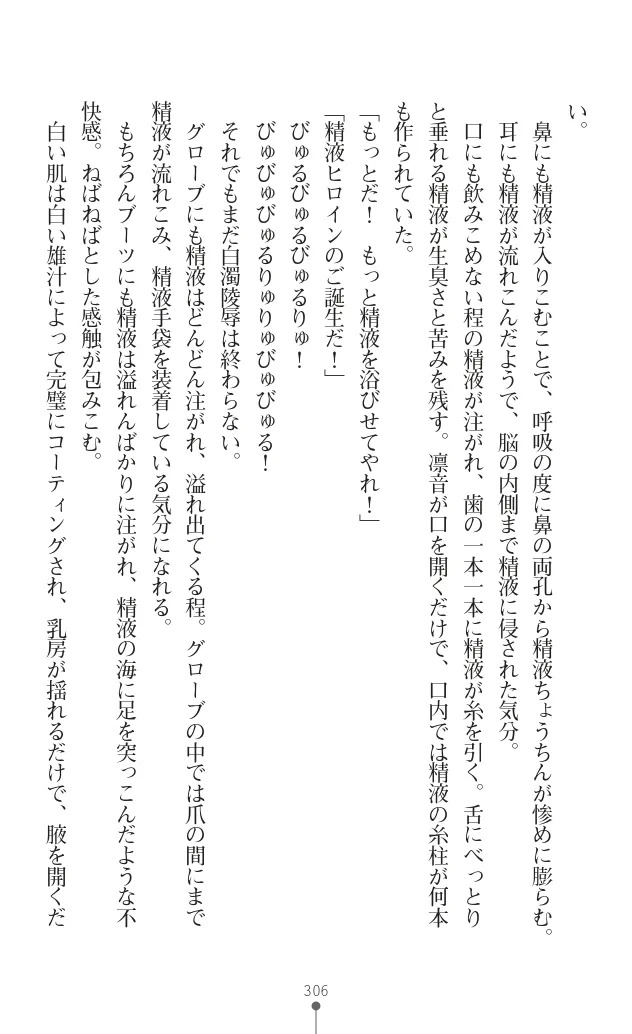 い。
　鼻にも精液が入りこむことで、呼吸の度に鼻の両孔から精液ちょうちんが惨めに膨らむ。
　耳にも精液が流れこんだようで、脳の内側まで精液に侵された気分。
　口にも飲みこめない程の精液が注がれ、歯の一本一本に精液が糸を引く。舌にべっとり
と垂れる精液が生臭さと苦みを残す。凛音が口を開くだけで、口内では精液の糸柱が何本
も作られていた。
「もっとだ！　もっと精液を浴びせてやれ！」
「精液ヒロインのご誕生だ！」
　びゅるびゅるびゅるりゅ！
　びゅびゅびゅるりゅりゅびゅびゅる！
　それでもまだ白濁陵辱は終わらない。
　グローブにも精液はどんどん注がれ、溢れ出てくる程。グローブの中では爪の間にまで
精液が流れこみ、精液手袋を装着している気分になれる。
　もちろんブーツにも精液は溢れんばかりに注がれ、精液の海に足を突っこんだような不
快感。ねばねばとした感触が包みこむ。
　白い肌は白い雄汁によって完璧にコーティングされ、乳房が揺れるだけで、腋を開くだ
306